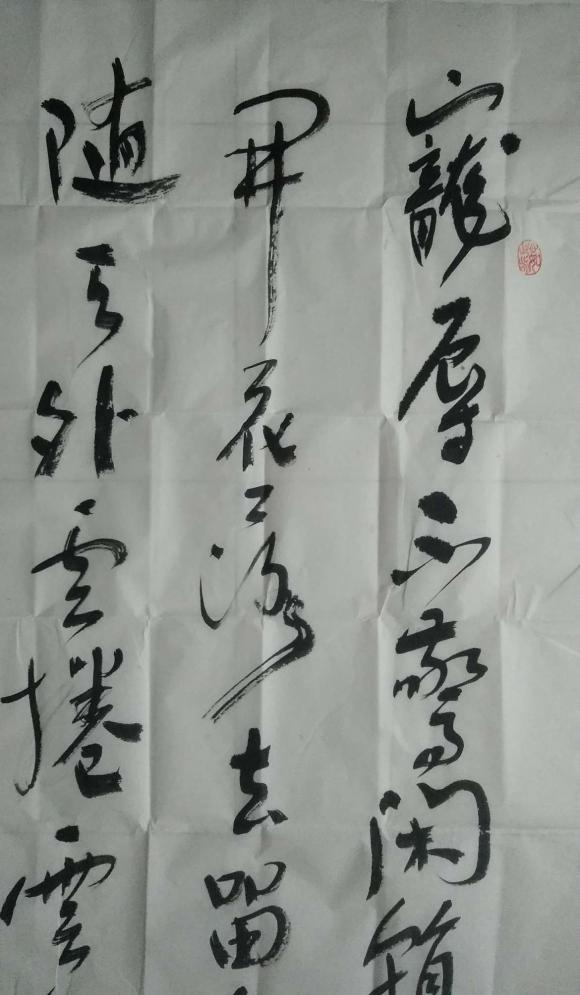 寵辱不驚閑
開花落去留
随天外雲捲雲